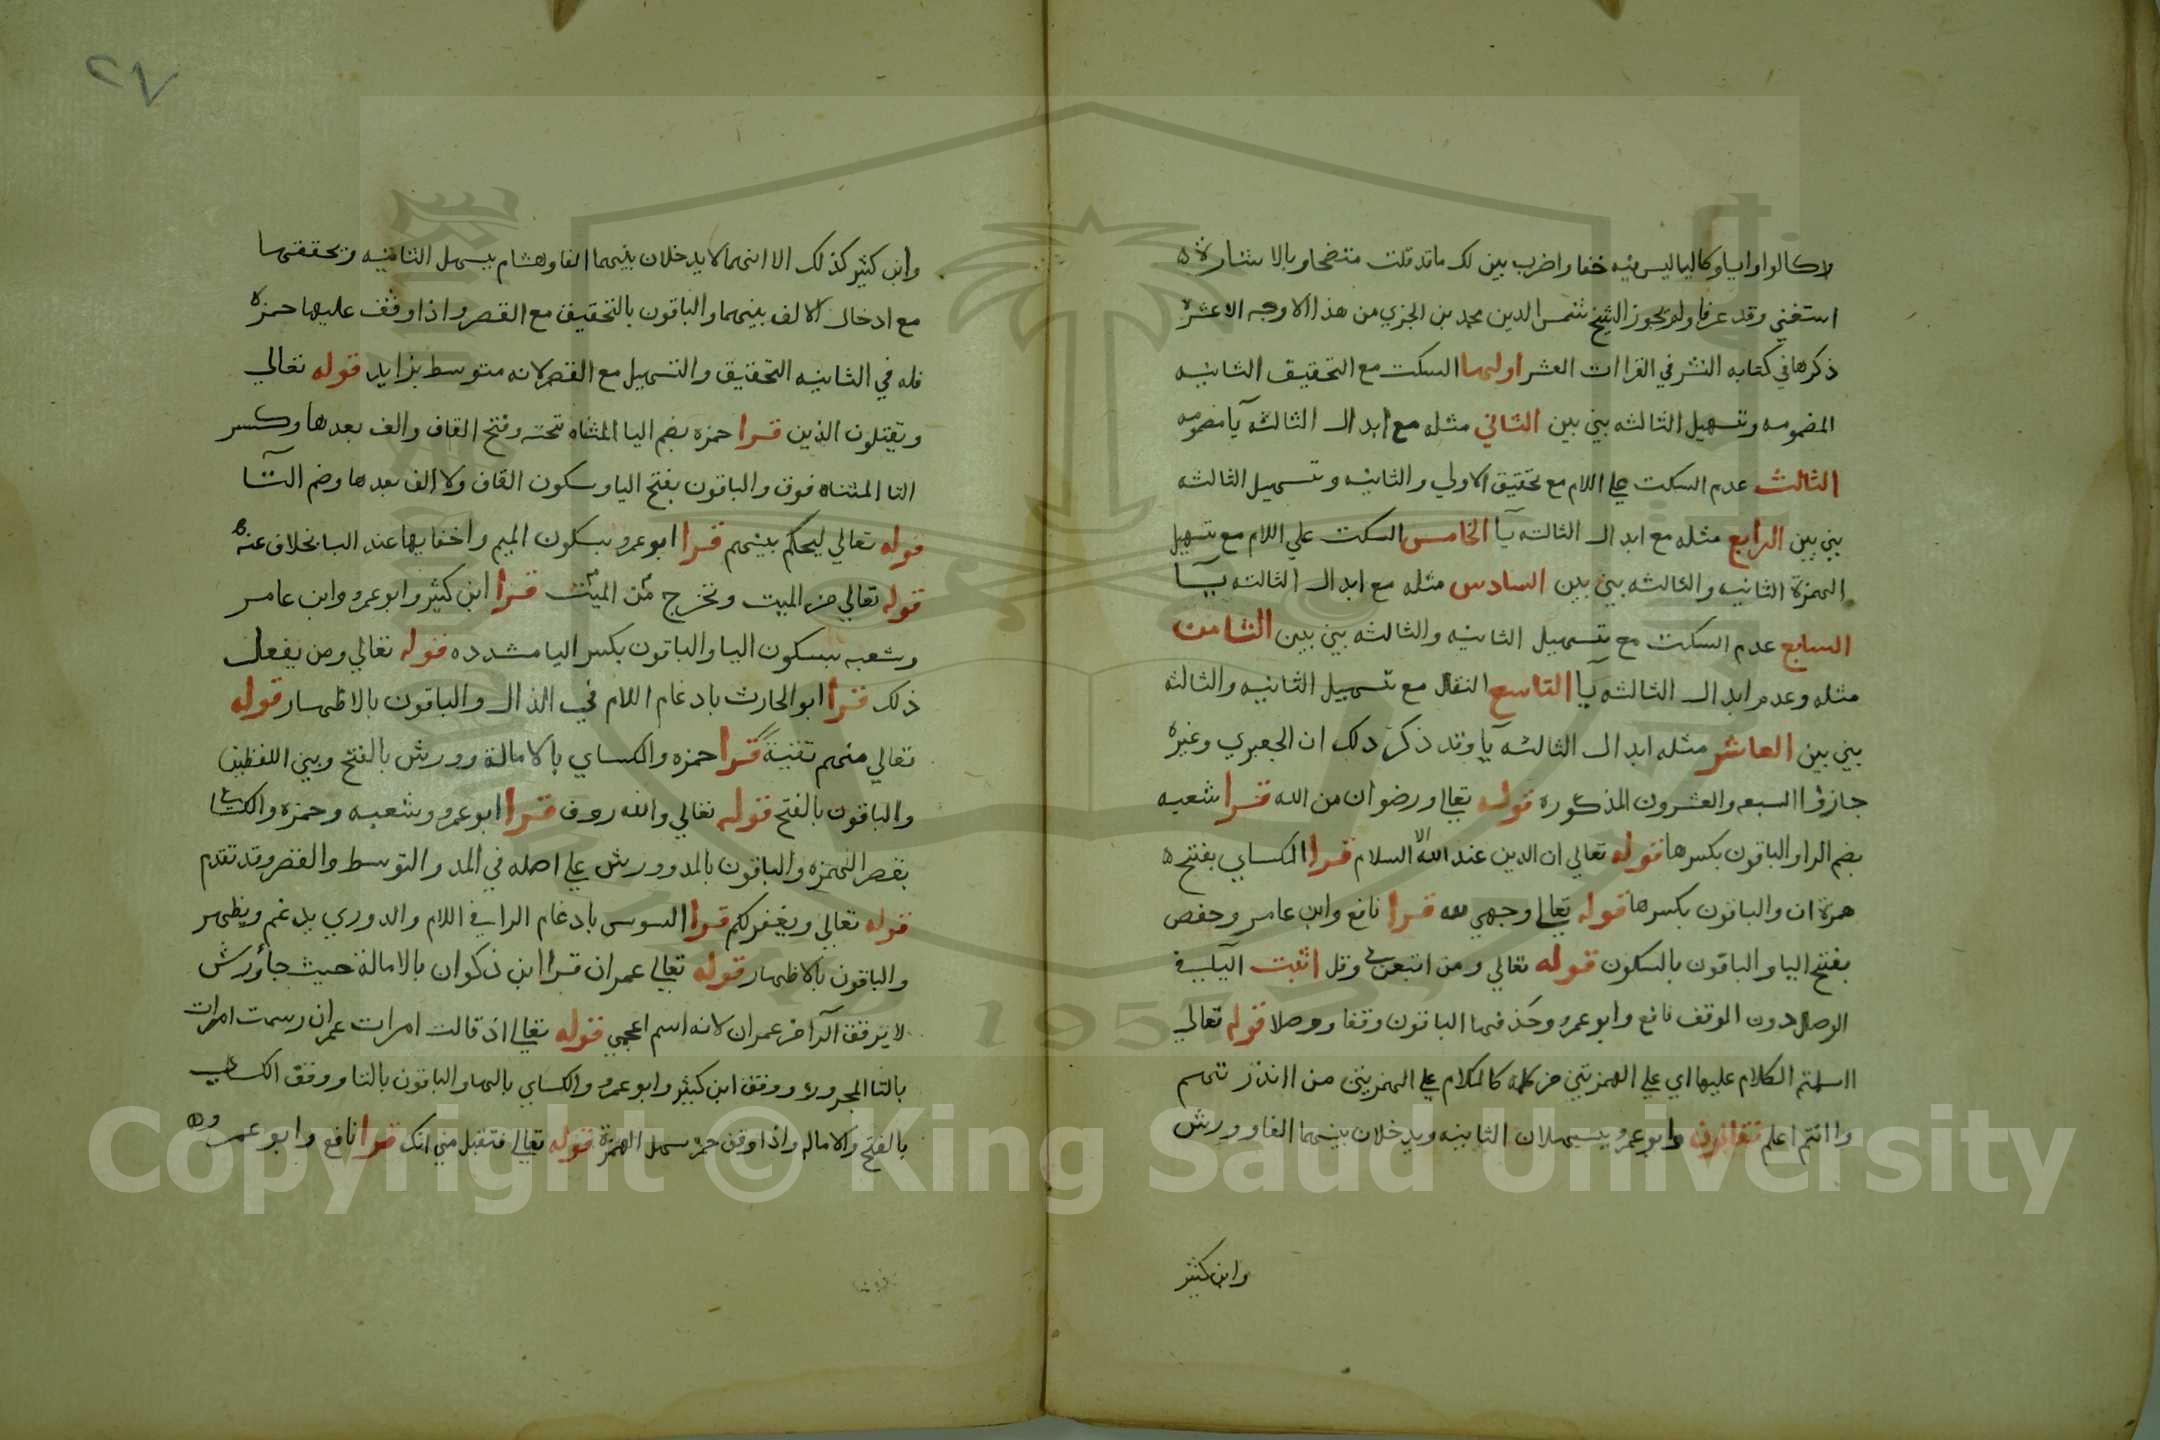 لا كالواو اياوكاليا ليس فيه خفا واضرب بين لك ما قد قلت متضحا وبالاشارة
استغني وقد عرفا ولم يجوز الشيخ شمس الدين محمد بن الجزري من هذا الاوجه الاعشرة
ذكرها في كتابه النشر في القراات العشر اولها السكت مع التحقيق الثانيه
المضمومه وتسهيل الثالثه بين بين الثاني مثله مع ابدال الثالثه يآ مضمومه
الثالث عدم السكت علي اللام مع تحقيق الاولي والثانيه وتسهيل الثالثه
بين بين الرابع مثله مع ابدال الثالثه يآ الخامس السكت علي اللام مع تسهيل
الهمزة الثانيه والثالثه بين بين السادس مثله مع ابدال الثالثه يآ
السابع عدم السكت مع تسهيل الثانيه والثالثه بين بين الثامن
مثله وعدم ابدال الثالثه يآ التاسع النقل مع تسهيل الثانيه والثالثه
بين بين العاشر مثله ابدال الثالثه يآ وقد ذكر ذلك ان الجعبري وغيره
جازوا السبعه والعشرون المذكوره قوله تعالي ورضوان من الله قرا شعبه
بضم الرا والباقون بكسرها قوله تعالي ان الدين عند الله الاسلام قرا الكساي بفتح
همزة ان والباقون بكسرها قوله تعالي وجهي لله قرا نافع وابن عامر وحفص
بفتح اليا والباقون بالسكون قوله تعالي ومن اتبعن وقل اثبت اليا في
الوصل دون الوقف نافع وابو عمرو وحذفها الباقون وقفا ووصلا قوله تعالي
ااسلمتم الكلام عليها اي علي الهمزتين من كلمة كالكلام علي الهمزتين من اانذرتهم
واانتم اعلم فقالون وابو عمرو يسهلان الثانيه ويدخلان بينهما الفا وورش
وابن كثير
٢٧
وابن كثير كذلك الا انهما لا يدخلان بينهما الفا وهشام يسهل الثانيه وتحققها
مع ادخال الالف بينهما والباقون بالتحقيق مع القصر واذا وقف عليها حمزه
فله في الثانيه التحقيق والتسهيل مع القصر لانه متوسط بزايد قوله تعالي
ويقتلون الذين قرا حمزه بضم اليا المثناه تحته وفتح القاف والف بعدها وكسر
التا المثناه فوق والباقون بفتح اليا وسكون القاف ولا الف بعدها وضم التآ
قوله تعالي ليحكم بينهم قرا ابو عمرو بسكون الميم واخفايها عند البا بخلاف عنه
قوله تعالي من الميت وتخرج من الميت قرا ابن كثير وابو عمرو وابن عامر
وشعبه بسكون اليا والباقون بكسر اليا مشدده قوله تعالي ومن يفعل
ذلك قرا ابو الحارث بادغام اللام في الذال والباقون بالاظهار قوله
تعالي منهم تقية قرا حمزه والكساي بالامالة وورش بالفتح وبين اللفظين
والباقون بالفتح قوله تعالي والله روف قرا ابو عمرو وشعبه وحمزه والكساي
بقصر الهمزه والباقون بالمد وورش علي اصله في المد والتوسط والقصر وقد تقدم
قوله تعالي ويغفر لكم قرا السوسي بادغام الرا في اللام والدوري يدغم ويظهر
والباقون بالاظهار قوله تعالي عمران قرا ابن ذكوان بالامالة حيث جا وورش
لا يرقق الرآ من عمران لانه اسم اعجمي قوله تعالي اذ قالت امرات عمران رسمت امرات
بالتا المجروره ووقف ابن كثير وابو عمرو والكساي بالها والباقون بالتا ووقف الكساي
بالفتح والاماله واذا وقف حمزه سهل الهمزة قوله تعالي فتقبل مني انك قرا نافع وابو عمرو